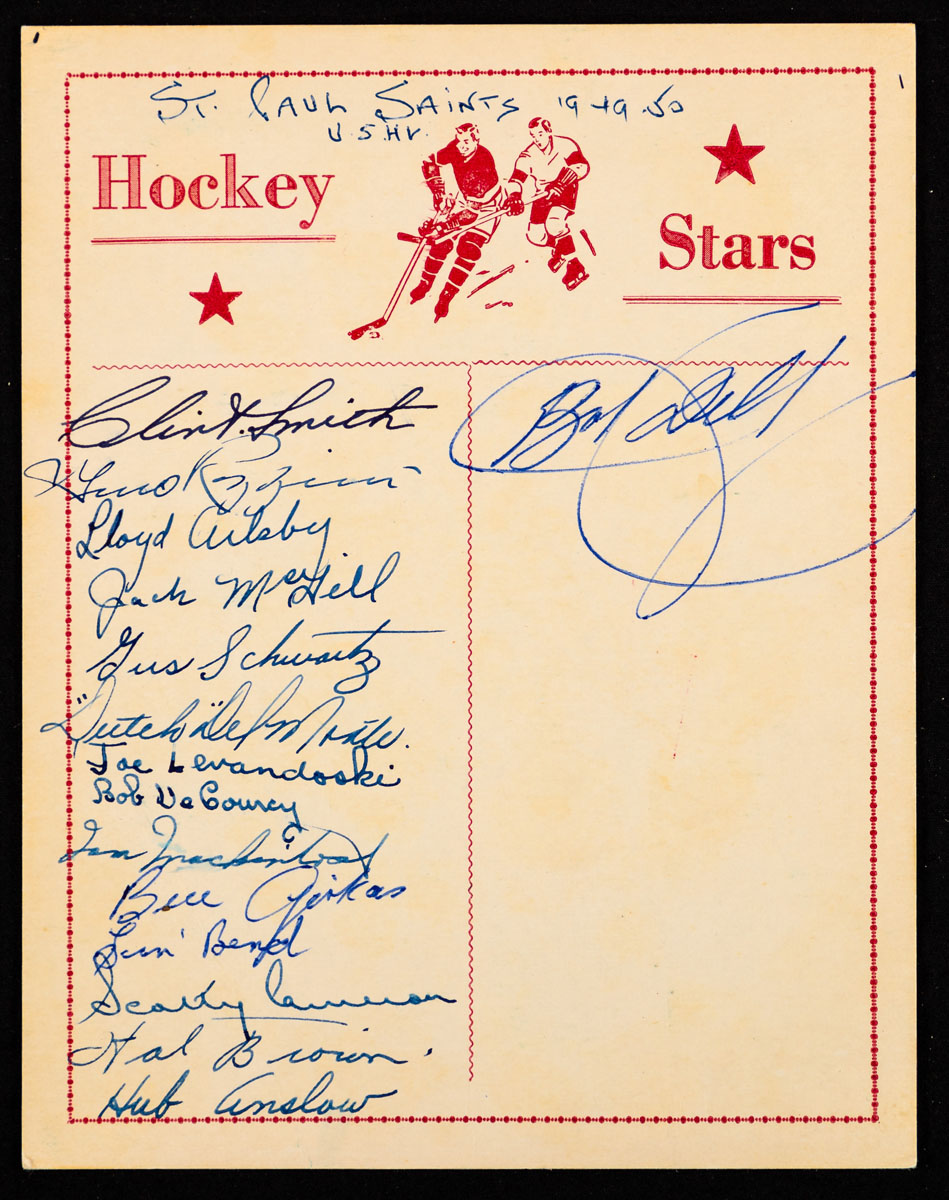 St. Paul Saints 1949 50
U.S.H.L.
Hockey
Stars
Clint Smith
Gino Rozzini
Lloyd Ailsby
Jack McGill
Gus Schwartz
"Dutch" Delmonte.
Joe Levandoski
Bob DeCourcy
Ian MacKintosh
Bill
Lin Bend
Scotty Cameron
Hal Brown.
Hub Anslow
Bob Dill